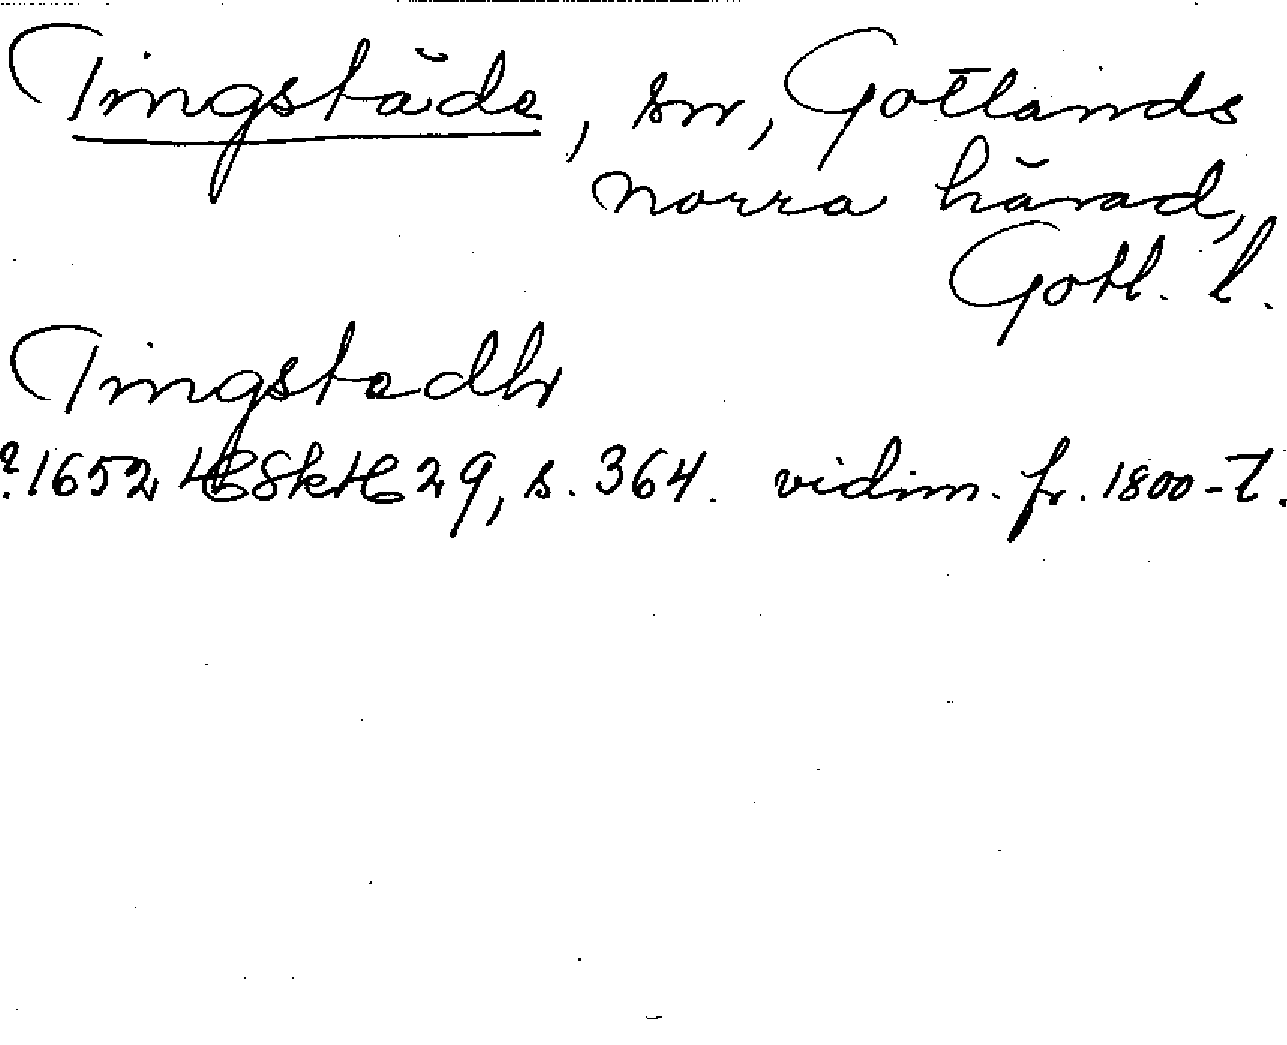 Tingstäde, sn, Gotlands
norra härad,
Gotl. l.
Tingstedhr
?1652 HSkH 29, s. 364. vidim. fr. 1800-t.